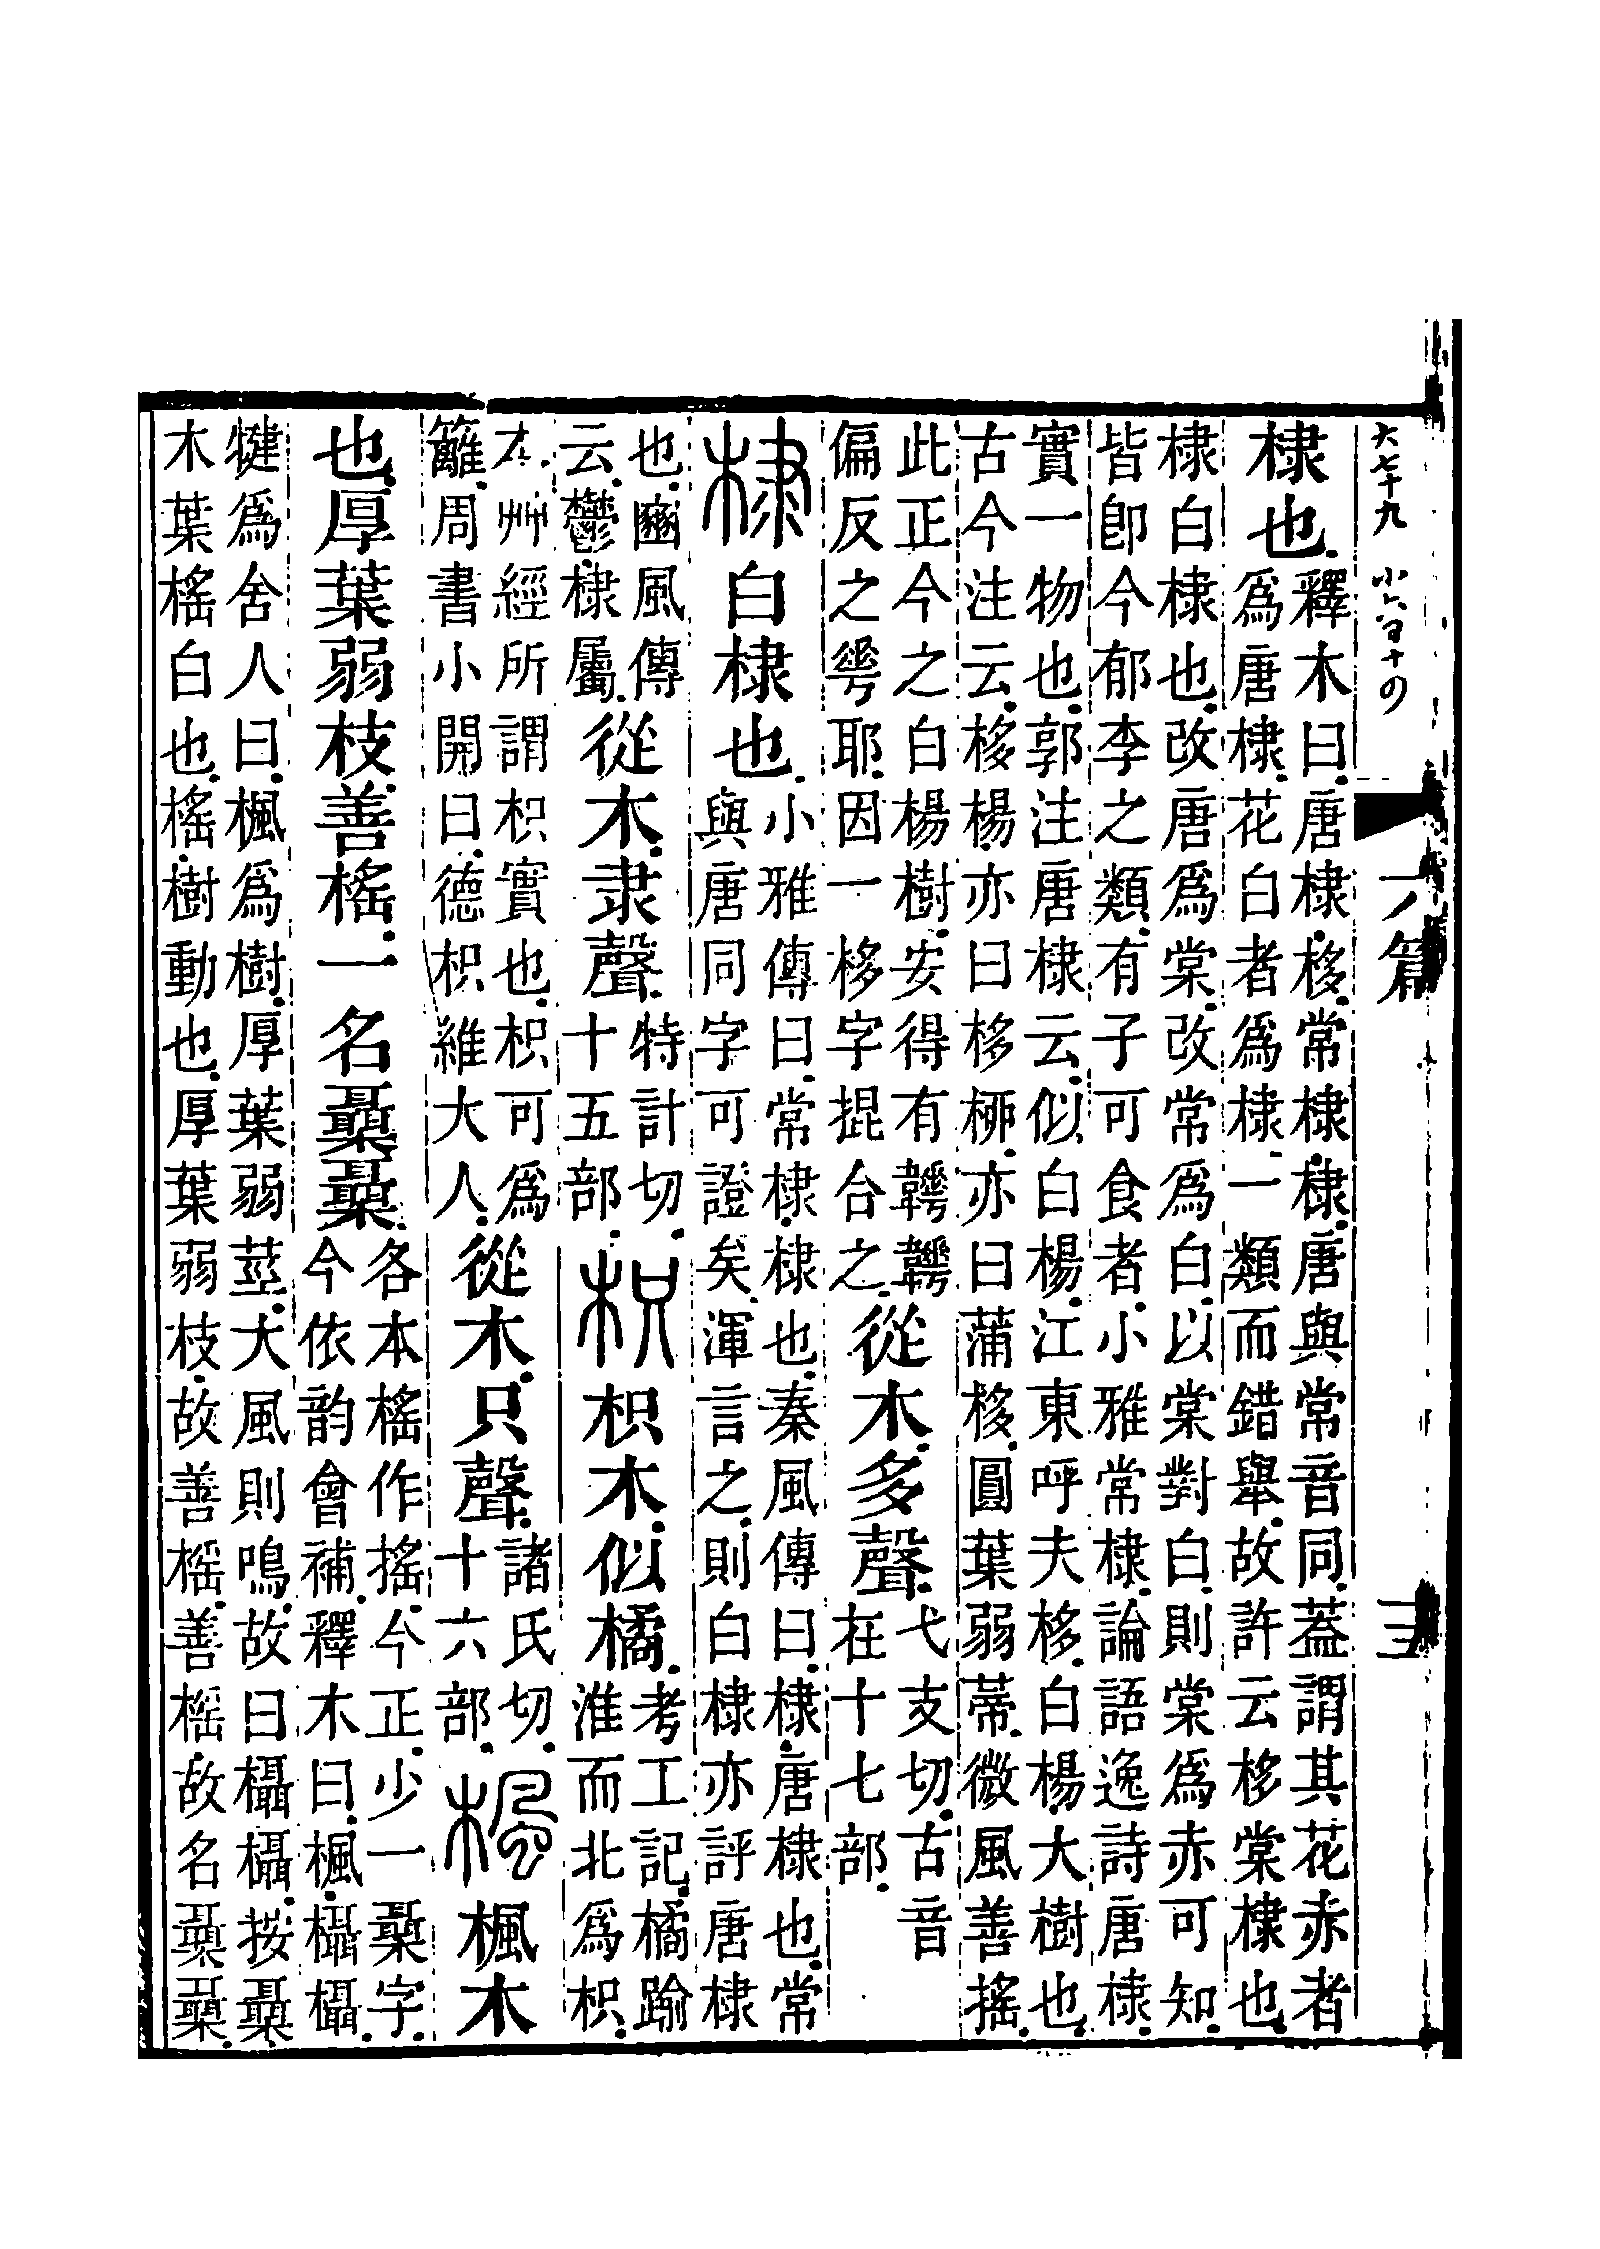 大七十九 小六百十四
六篇
棣也。釋木曰。唐棣、栘。常棣、棣。唐與常音同。葢謂其花赤者
爲唐棣。花白者爲棣。一類而錯舉。故許云栘棠棣也。
棣白棣也。改唐爲棠。改常爲白。以棠對白。則棠爲赤可知。
皆卽今郁李之類。有子可食者。小雅常棣。論語逸詩唐棣。
實一物也。郭注唐棣云。似白楊。江東呼夫栘。白楊大樹也。
古今注云。栘楊亦曰栘桺。亦曰蒲栘。圓葉弱蒂。微風善搖。
此正今之白楊樹。安得有韡韡
偏反之華耶。因一栘字掍合之。從木多聲。弋支切。古音
在十七部。
棣 白棣也。小雅傳曰。常棣、棣也。秦風傳曰。棣、唐棣也。常
與唐同字可證矣。渾言之。則白棣亦評唐棣
也。豳風傳
云。鬱、棣屬。從木隶聲。特計切。
十五部。枳 枳木似橘。考工記。橘踰
淮而北爲枳。
本艸經所謂枳實也。枳可爲
籬。周書小開曰。德枳維大人。從木只聲。諸氏切。
十六部。楓 楓木
也。厚葉弱枝善榣。一名𣠞𣠞。各本榣作搖。今正。少一𣠞字。
今依韵會補。釋木曰。楓、欇欇。
犍爲舍人曰。楓爲樹。厚葉弱莖。大風則鳴。故曰欇欇。按𣠞𣠞
木葉榣白也。榣、樹動也。厚葉弱枝。故善榣。善榣故名𣠞𣠞。